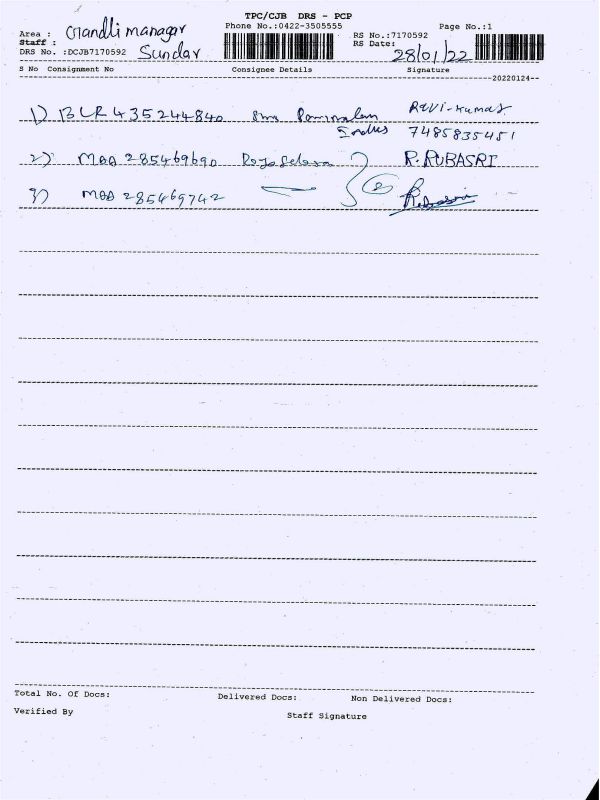 TPC/CJB DRS - PCP
Phone No.:0422-3505555 Page No.:1
Area : Gandhi managar
Staff : Sundar
RS No.:7170592
DRS No. :DCJB7170592
RS Date: 28/01/22
S No Consignment No Consignee Details Signature
20220124
1) BLR 435244840 Ravi-kumar
7485835451
2) MAA 285469690 R.RUBASRI
3) MAA 285469742
Total No. Of Docs: Delivered Docs: Non Delivered Docs:
Verified By Staff Signature